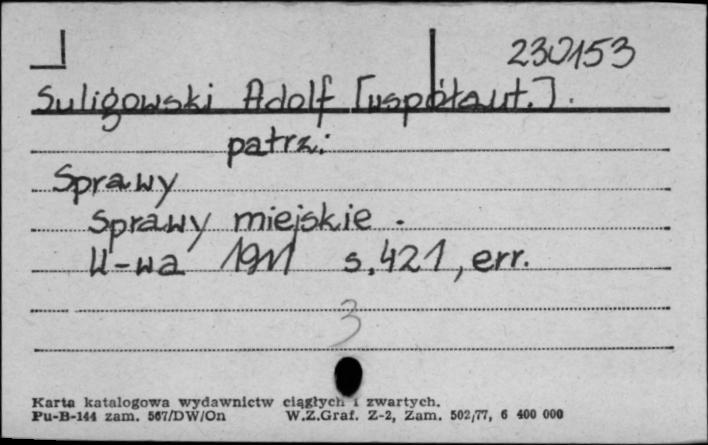 230153
Suligowski Adolf [współaut.].
patrz:
Sprawy
Sprawy miejskie.
W-wa 1911 s. 421, err.
3
Karta katalogowa wydawnictw ciągłych i zwartych.
Pu-B-144 zam. 567/DW/On W.Z.Graf. Z-2, Zam. 502/77, 6 400 000